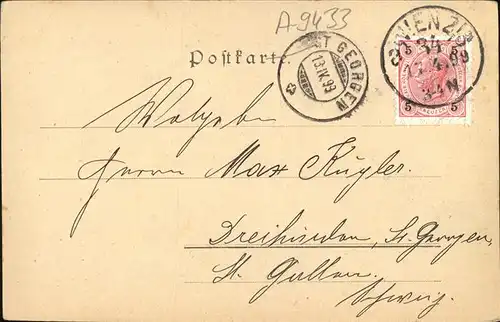 A-9433
Postkarte.
ST GEORGEN
13.IV.99
WIEN
4.99
3-4N
5 5
Wolgeben
Herrn Max Kugler.
Dreilinden, St. Georgen
St. Gallen.
Schweiz.